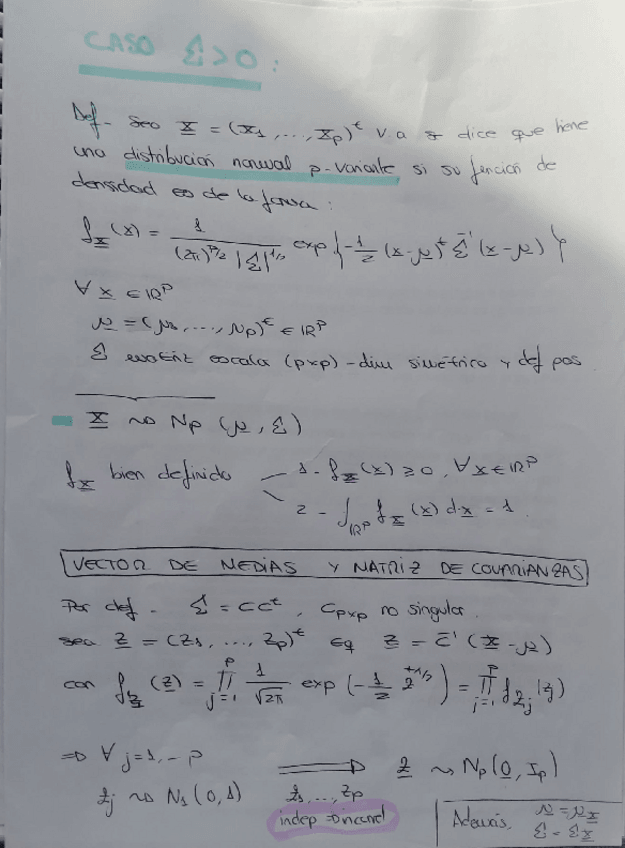 CASO Σ>0 :
Def- Sea X = (X1, ..., Xp)^t v.a se dice que tiene
una distribución normal p-variante si su función de
densidad es de la forma :
f_X (x) = 1 / ((2π)^{p/2} |Σ|^{1/2}) exp { -1/2 (x-μ)^t Σ^{-1} (x-μ) }
∀ x ∈ IR^p
μ = (μ1, ..., μp)^t ∈ IR^p
Σ matriz escala (pxp) - dim simétrica y def pos
X ~ Np (μ, Σ)
f_X bien definido
1 - f_X(x) ≥ 0, ∀x ∈ IR^p
2 - ∫_{IR^p} f_X (x) dx = 1
VECTOR DE MEDIAS Y MATRIZ DE COVARIANZAS
Por def - Σ = CC^t, C_{pxp} no singular.
sea Z = (Z1, ..., Zp)^t tq Z = C^{-1} (X - μ)
con f_Z (z) = ∏_{j=1}^{p} 1/√2π exp (-1/2 ) = ∏_{j=1}^{p} f_{Zj} (zj)
⇒ ∀ j=1, - p ⟹ Z ~ Np (0, Ip)
Zj ~ N1 (0, 1) Z1, ..., Zp
indep ⇒ incorrel
Además, μ = μ_X
Σ = Σ_X